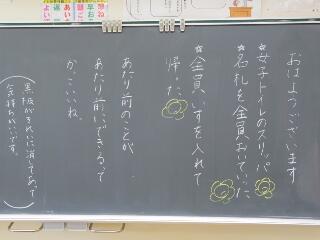 おはようございます
☆女子トイレのスリッパ
☆名札を全員おいていった
☆全員いすを入れて
帰った
あたり前のことが
あたり前にできるって
かっこいいね。
(黒板がきれいに消してあって
気持ちがいいです。)